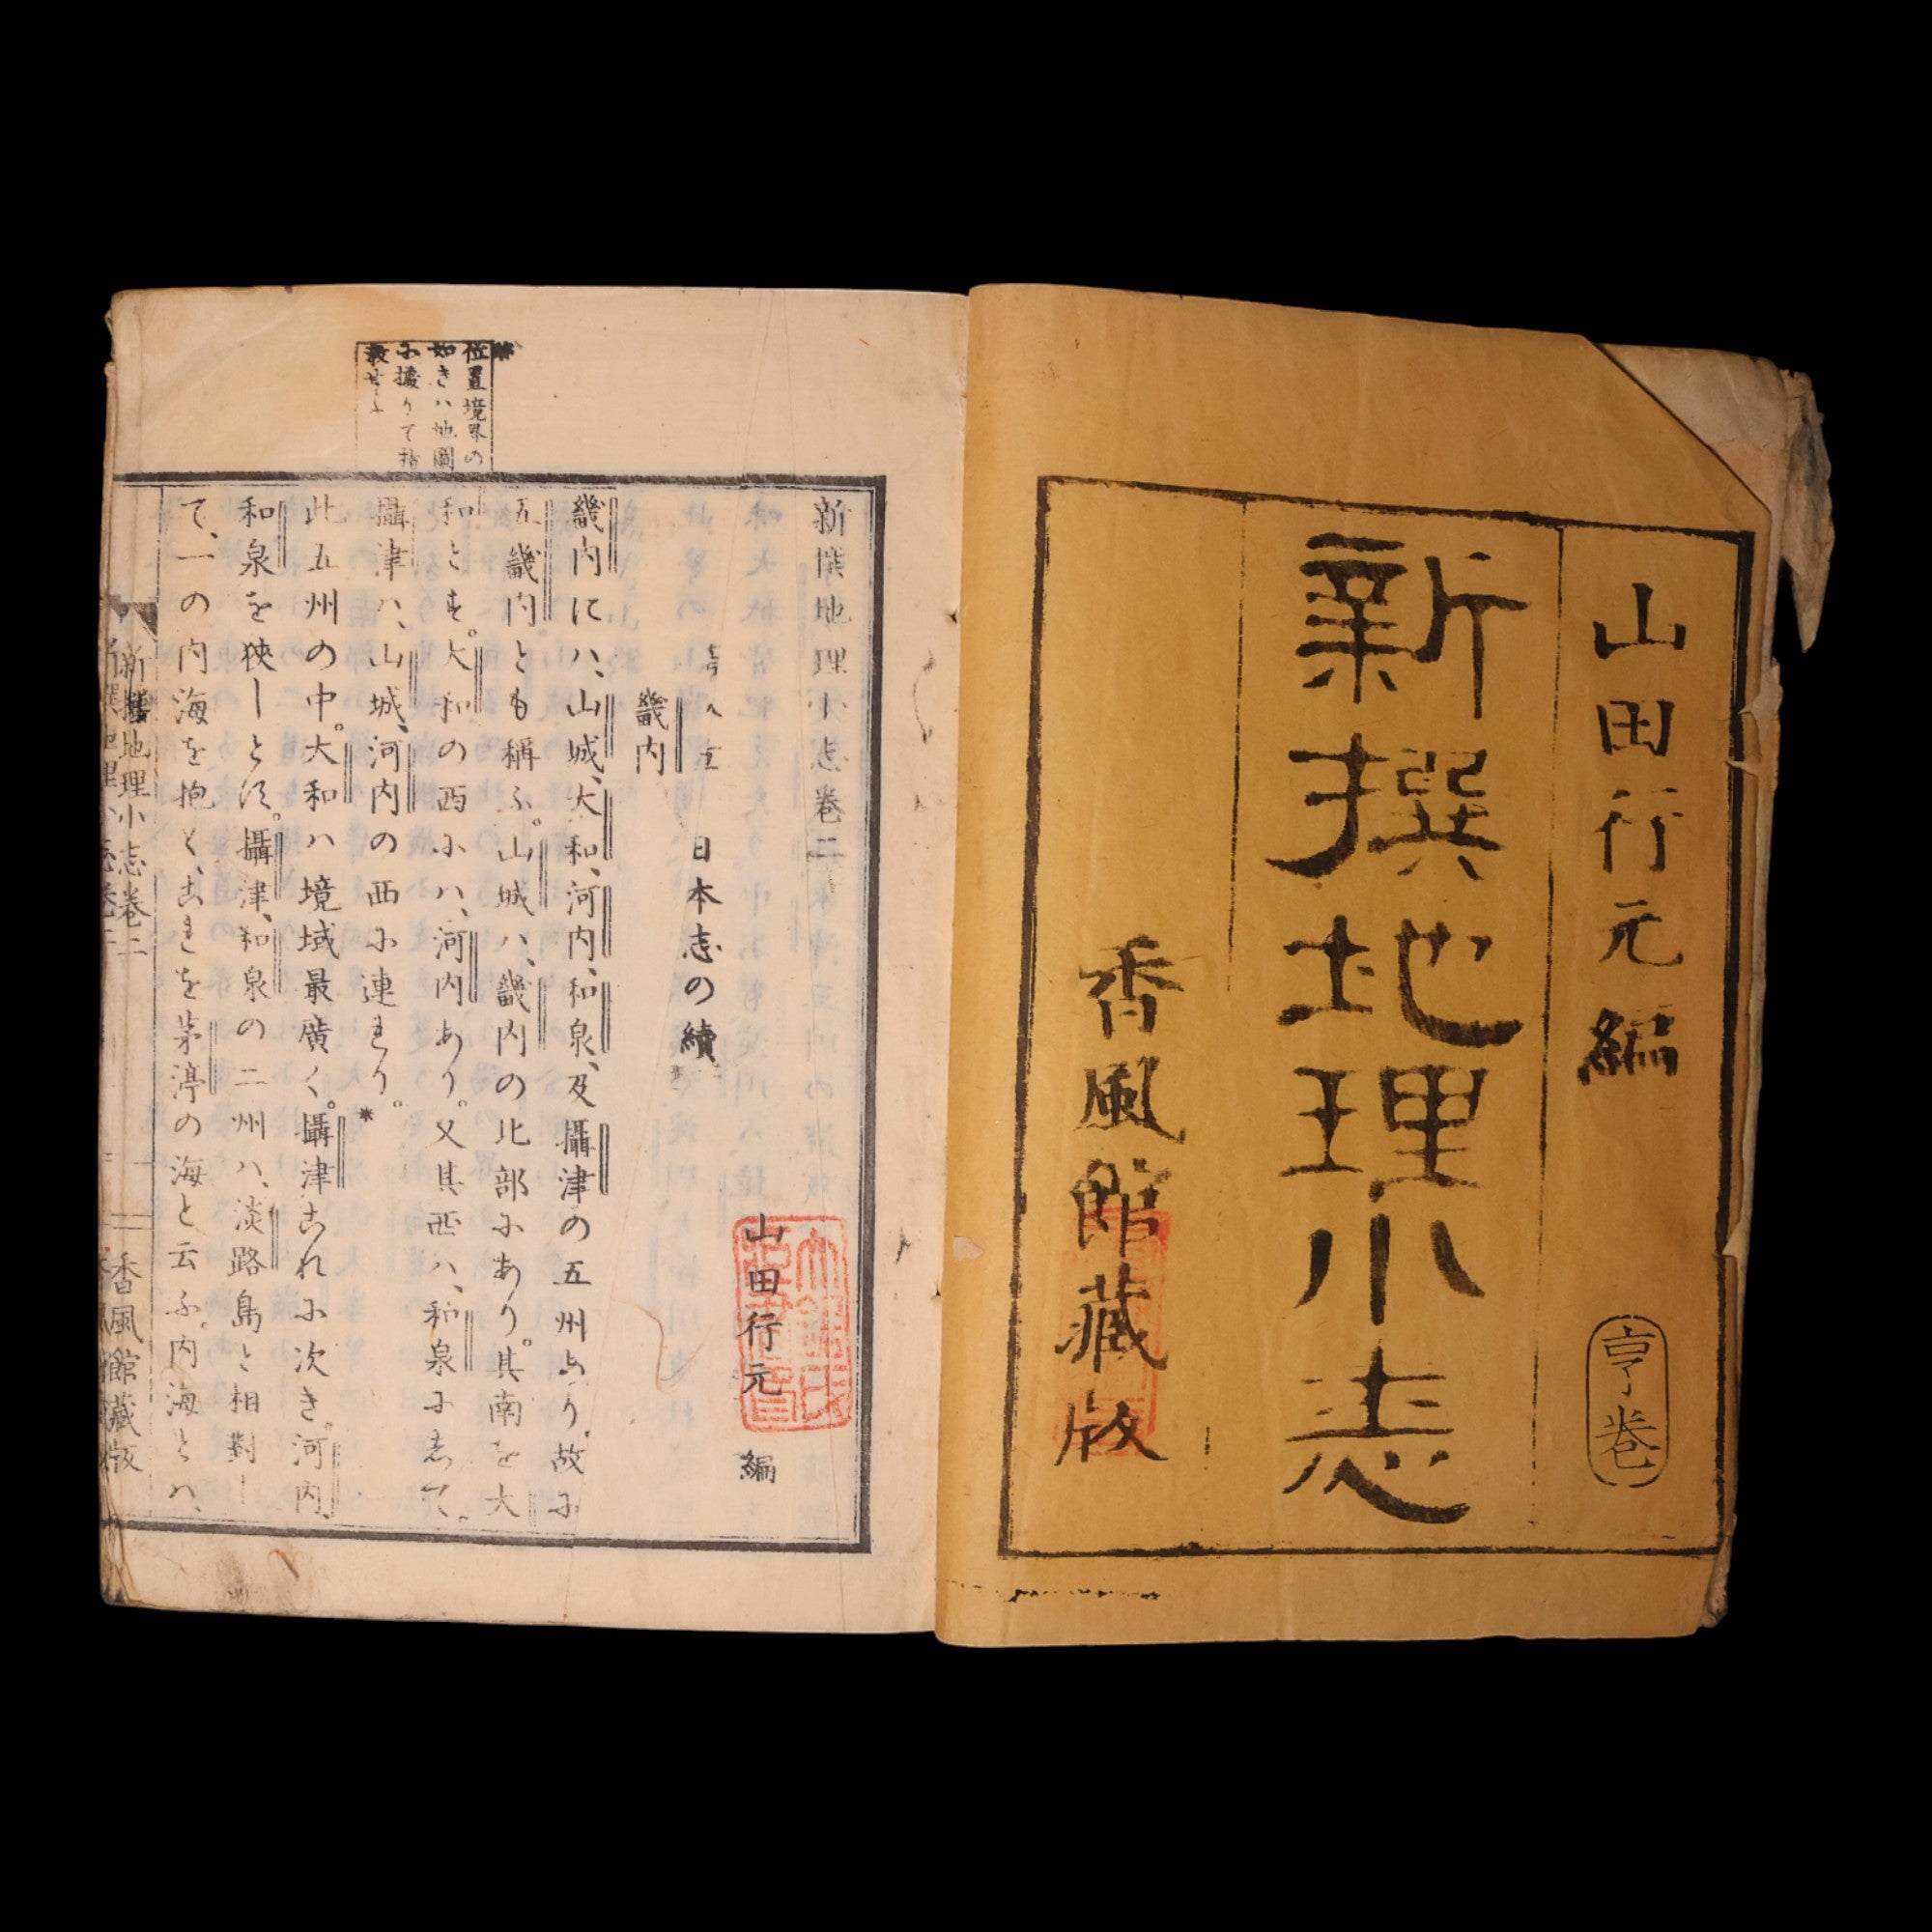 山田行元編
亨巻
新撰地理小志
香風館藏版
新撰地理小志卷二
山田行元 編
日本志の續
畿内
畿内にハ、山城、大和、河内、和泉、及攝津の五州あり、故に
五畿内とも稱ふ。山城ハ、畿内の北部にあり。其南を大
和とす。大和の西にハ、河内あり。又其西ハ、和泉にして、
攝津ハ、山城、河内の西に連れり。
此五州の中。大和ハ境域最廣く。攝津これに次き。河内、
和泉を狹しとす。攝津、和泉の二州ハ、淡路島と相對し
て、一の内海を抱く、これを茅渟の海と云ふ。内海とハ、
位置境界の
如きハ地圖
に據りて指
教せよ
新撰地理小志卷二
香風館藏版